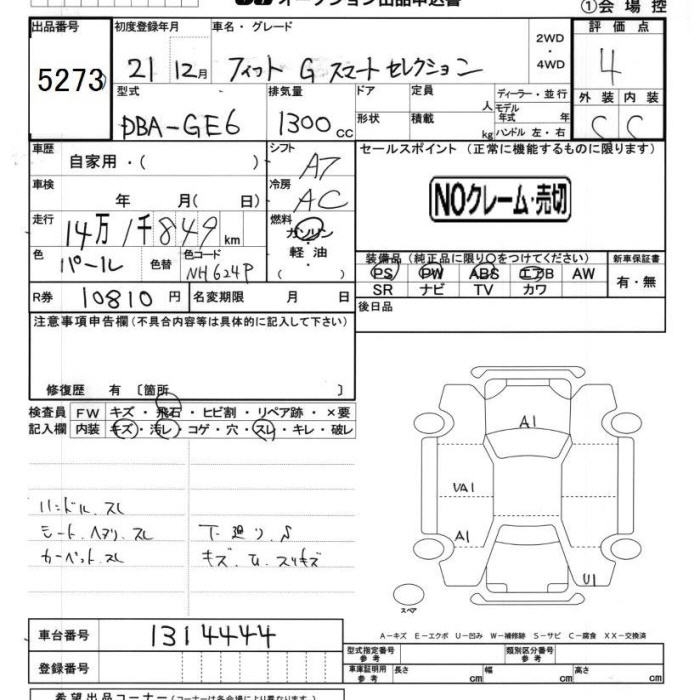 オークション出品申込書
①会場控
出品番号
5273
初度登録年月
21 12月
車名・グレード
フィット G スマートセレクション
2WD
・
4WD
評価点
4
外装 内装
C C
型式
DBA-GE6
排気量
1300cc
ドア
形状
定員
人
積載
kg
ディーラー・並行
モデル年式 年
ハンドル 左・右
車歴
自家用・( )
シフト
AT
車検
年 月( 日)
冷房
AC
走行
14万1千849km
燃料
ガソリン
・
軽油
( )
色
パール
色替
色コード
NH624P
R券
10810円
名変期限 月 日
セールスポイント(正常に機能するものに限ります)
NOクレーム・売切
装備品(純正品に限り○をつけてください)
PS PW ABS エアB AW
SR ナビ TV カワ
新車保証書
有・無
後日品
注意事項申告欄(不具合内容等は具体的に記入して下さい)
修復歴 有〔箇所 〕
検査員記入欄
FW キズ・飛石・ヒビ割・リペア跡・×要
内装 キズ・汚レ・コゲ・穴・スレ・キレ・破レ
ハンドル.スレ
シート.ヘタリ.スレ
カーペット.スレ
下廻り.S
キズ.U.スリキズ
A1
UA1
A1
U1
スペア
A-キズ E-エクボ U-凹み W-補修跡 S-サビ C-腐食 XX-交換済
車台番号
1314444
登録番号
型式指定番号
参考
類別区分番号
参考
車庫証明用
参考
長さ cm 幅 cm 高さ cm
希望出品コーナー(コーナーは各会場により異なります)